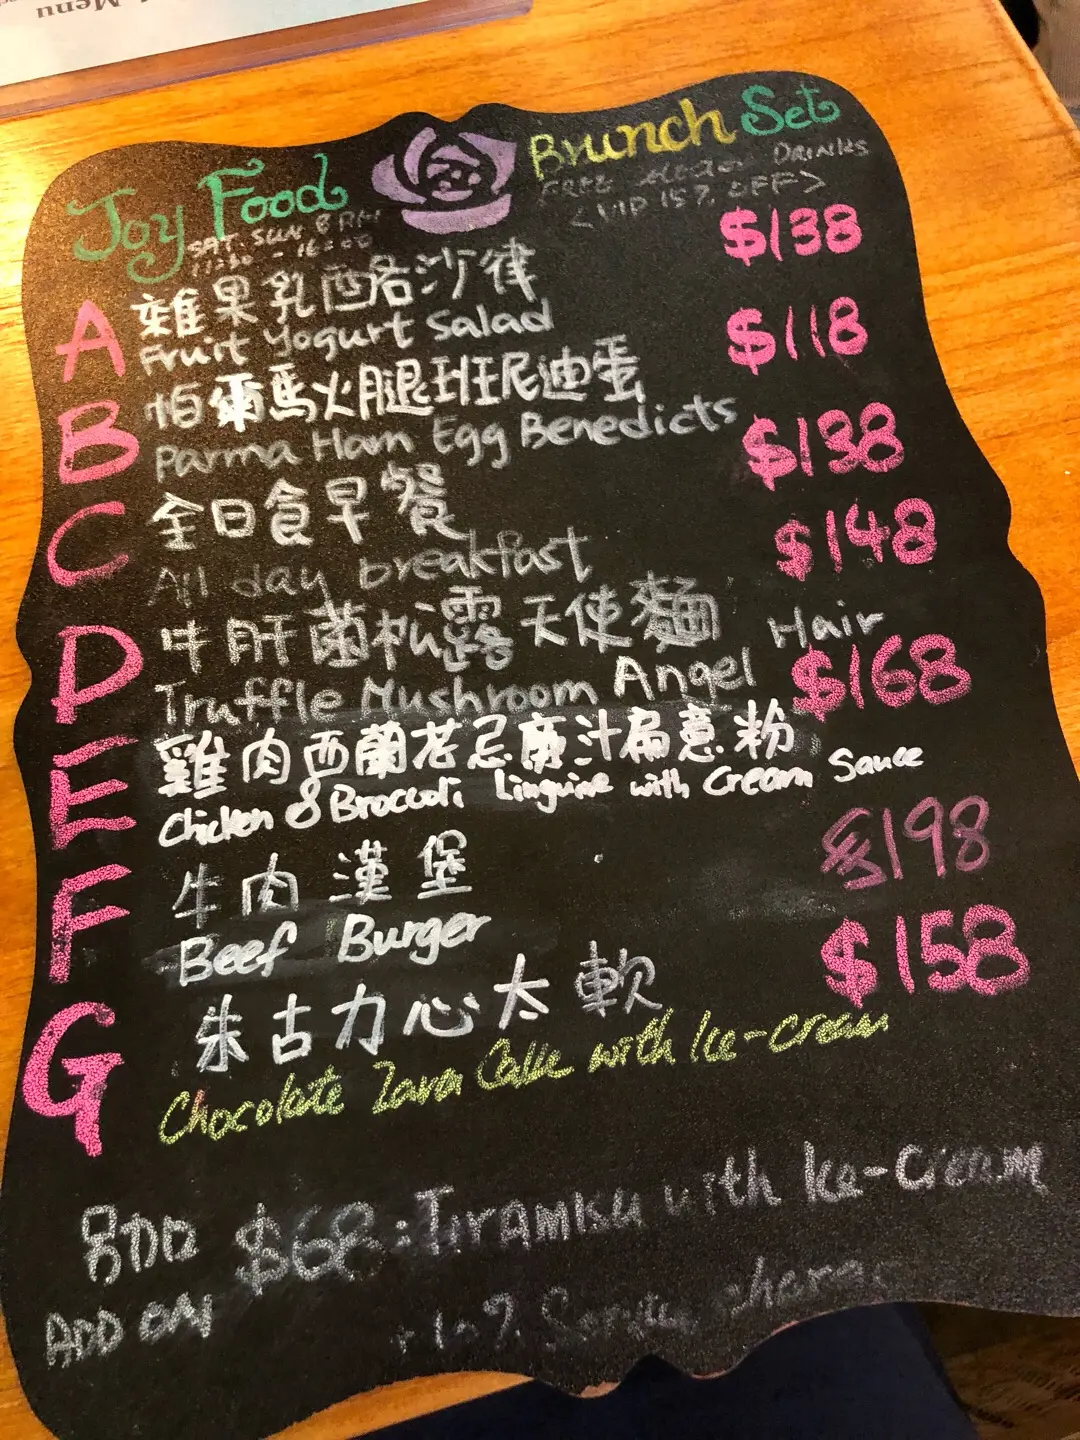 Menu
Joy Food
Brunch Set
SAT. SUN & PH
11:30 - 16:00
FREE DRINKS
<VIP 15% OFF>
A 雜果乳酪沙律 $138
Fruit Yogurt Salad
B 帕爾馬火腿班尼迪蛋 $118
Parma Ham Egg Benedicts
C 全日食早餐 $138
All day breakfast
D 牛肝菌松露天使麵 $148
Truffle Mushroom Angel Hair
E 雞肉西蘭花忌廉汁扁意粉 $168
Chicken & Broccoli Linguine with Cream Sauce
F 牛肉漢堡 $198
Beef Burger
G 朱古力心太軟 $158
Chocolate Lava Cake with Ice-cream
另加 $68: Tiramisu with Ice-Cream
ADD ON
+10% Service charge